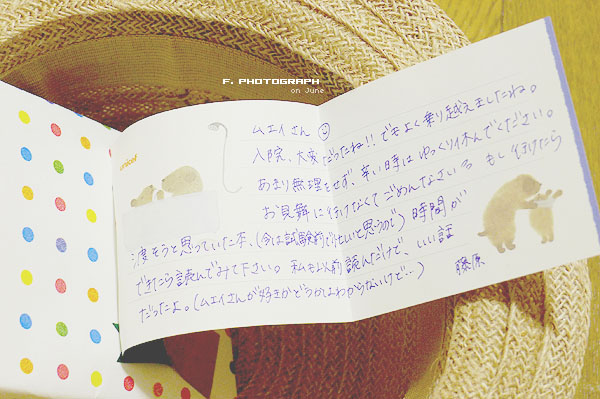 F. PHOTOGRAPH
on June
ムエイさん
入院、大変だったね!! でもよく乗り越えましたね。
あまり無理をせず、辛い時はゆっくり休んでください。
お見舞に行けなくてごめんなさいね もし行けたら
渡そうと思っていた本、(今は試験前で忙しいと思うので) 時間が
できたら読んでみて下さい。私も以前読んだけど、いい話
だったよ。(ムエイさんが好きかどうかはわからないけど…)
藤原